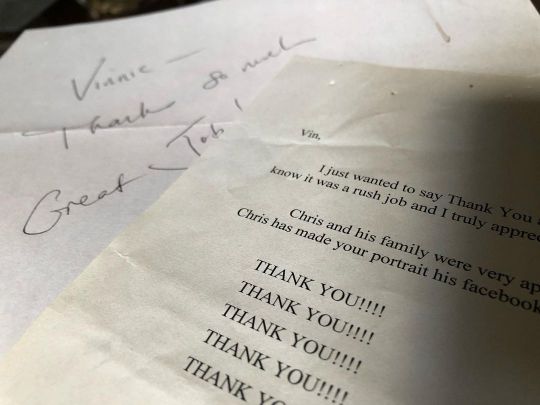 Vinnie —
Thank so much
Great Job!
Vin,
I just wanted to say Thank You
know it was a rush job and I truly appre
Chris and his family were very ap
Chris has made your portrait his facebook
THANK YOU!!!!
THANK YOU!!!!
THANK YOU!!!!
THANK YOU!!!!
THANK YO